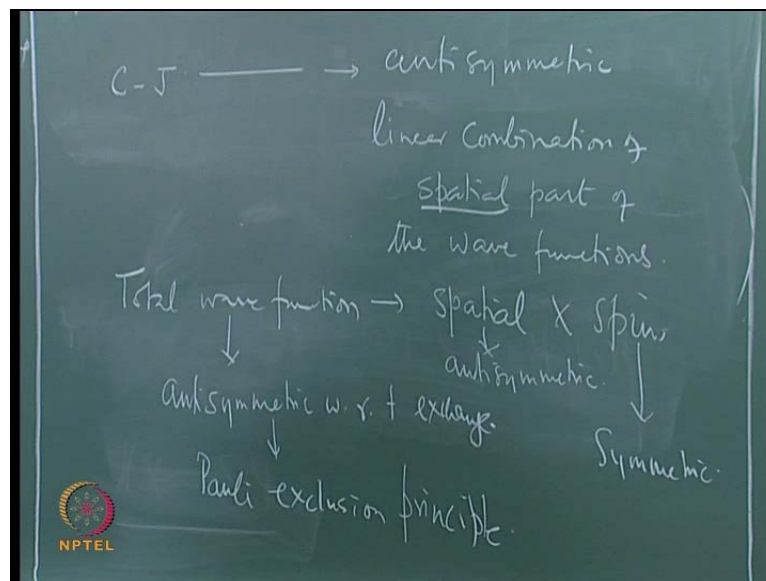 C-J → antisymmetric
linear combination of
spatial part of
the wave functions.
Total wave function → spatial X spin
antisymmetric.
antisymmetric w.r.t exchange.
Symmetric.
Pauli exclusion principle.
NPTEL